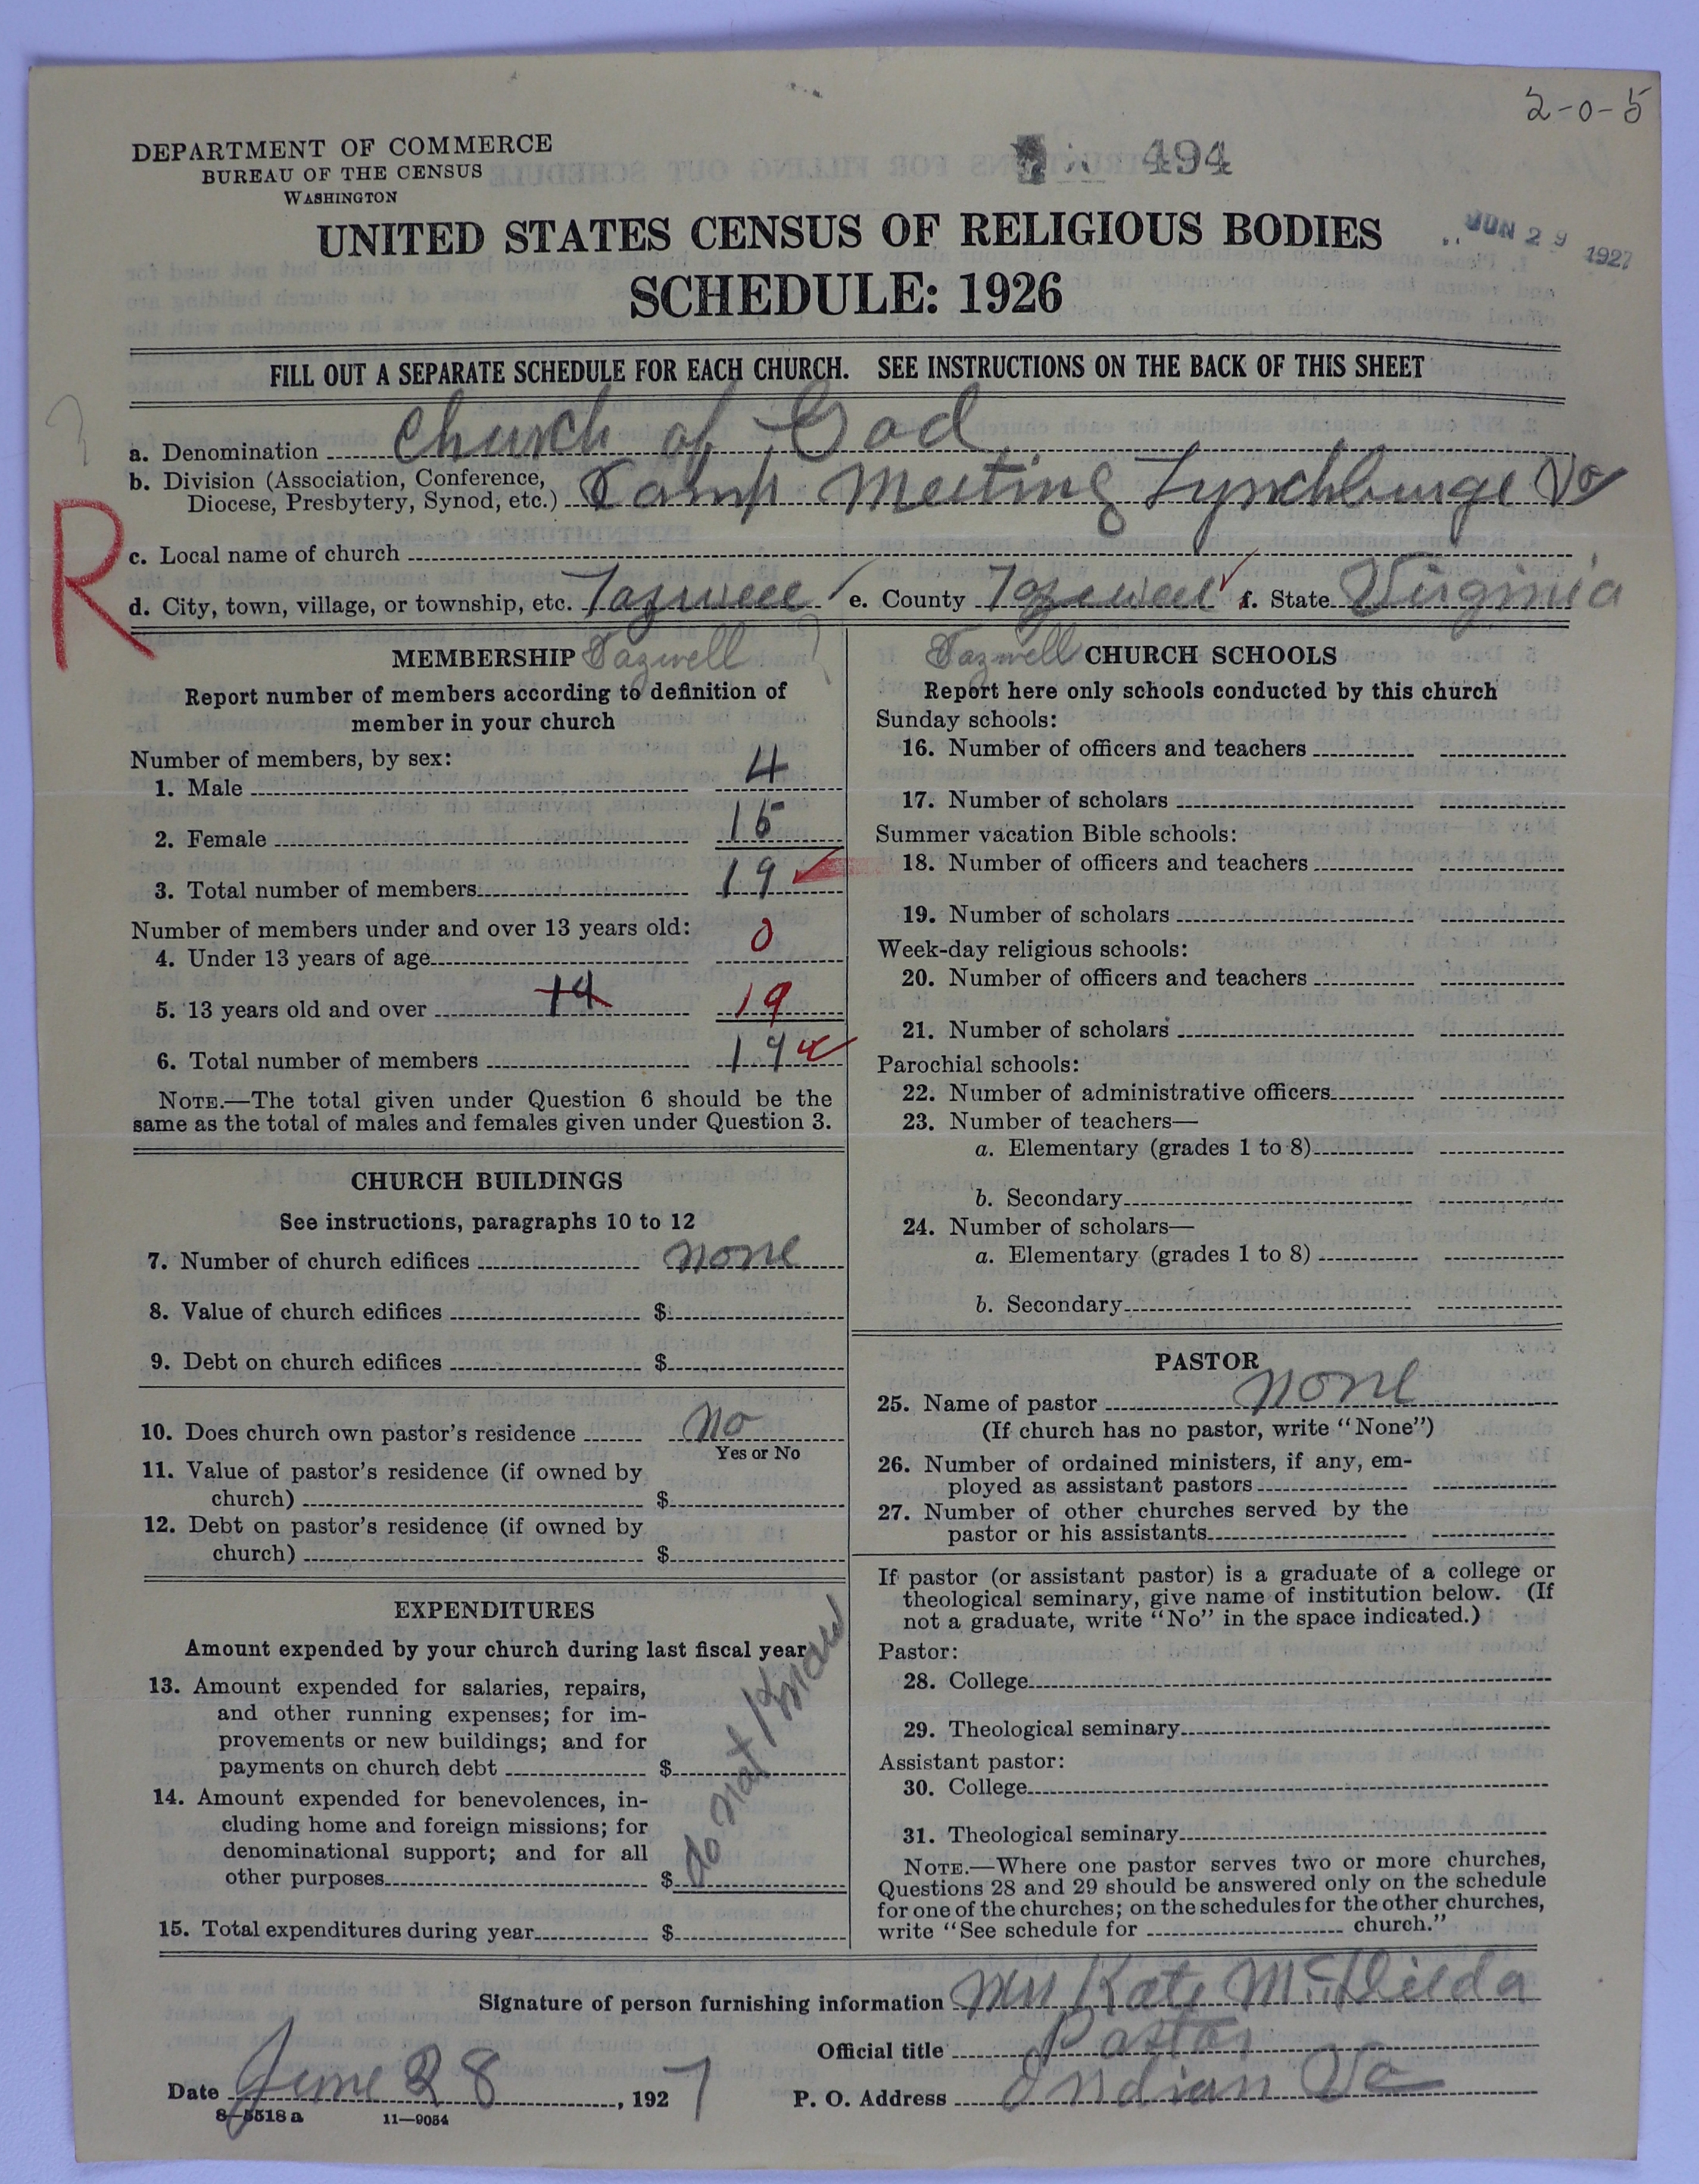 2-0-5
DEPARTMENT OF COMMERCE
BUREAU OF THE CENSUS
WASHINGTON
494
UNITED STATES CENSUS OF RELIGIOUS BODIES
JUN 29 1927
SCHEDULE: 1926
FILL OUT A SEPARATE SCHEDULE FOR EACH CHURCH. SEE INSTRUCTIONS ON THE BACK OF THIS SHEET
a. Denomination Church of God
b. Division (Association, Conference,
Diocese, Presbytery, Synod, etc.) Camp Meeting Lynchburge Va
R
c. Local name of church
d. City, town, village, or township, etc. Tazwell e. County Tazewell f. State Virginia
MEMBERSHIP Tazwell
Report number of members according to definition of
member in your church
Number of members, by sex:
1. Male 4
2. Female 15
3. Total number of members 19
Number of members under and over 13 years old:
4. Under 13 years of age 0
5. 13 years old and over 19 19
6. Total number of members 19
NOTE.—The total given under Question 6 should be the
same as the total of males and females given under Question 3.
CHURCH BUILDINGS
See instructions, paragraphs 10 to 12
7. Number of church edifices none
8. Value of church edifices $
9. Debt on church edifices $
10. Does church own pastor's residence No
Yes or No
11. Value of pastor's residence (if owned by
church) $
12. Debt on pastor's residence (if owned by
church) $
EXPENDITURES
Amount expended by your church during last fiscal year
13. Amount expended for salaries, repairs,
and other running expenses; for im-
provements or new buildings; and for
payments on church debt $
14. Amount expended for benevolences, in-
cluding home and foreign missions; for
denominational support; and for all
other purposes $
do not Know
15. Total expenditures during year $
Tazwell CHURCH SCHOOLS
Report here only schools conducted by this church
Sunday schools:
16. Number of officers and teachers
17. Number of scholars
Summer vacation Bible schools:
18. Number of officers and teachers
19. Number of scholars
Week-day religious schools:
20. Number of officers and teachers
21. Number of scholars
Parochial schools:
22. Number of administrative officers
23. Number of teachers—
a. Elementary (grades 1 to 8)
b. Secondary
24. Number of scholars—
a. Elementary (grades 1 to 8)
b. Secondary
PASTOR
25. Name of pastor none
(If church has no pastor, write "None")
26. Number of ordained ministers, if any, em-
ployed as assistant pastors
27. Number of other churches served by the
pastor or his assistants
If pastor (or assistant pastor) is a graduate of a college or
theological seminary, give name of institution below. (If
not a graduate, write "No" in the space indicated.)
Pastor:
28. College
29. Theological seminary
Assistant pastor:
30. College
31. Theological seminary
NOTE.—Where one pastor serves two or more churches,
Questions 28 and 29 should be answered only on the schedule
for one of the churches; on the schedules for the other churches,
write "See schedule for church."
Signature of person furnishing information Mrs Kate
Official title Pastor
Date June 28, 1927 P. O. Address Indian Va
8-5518 a 11-9054